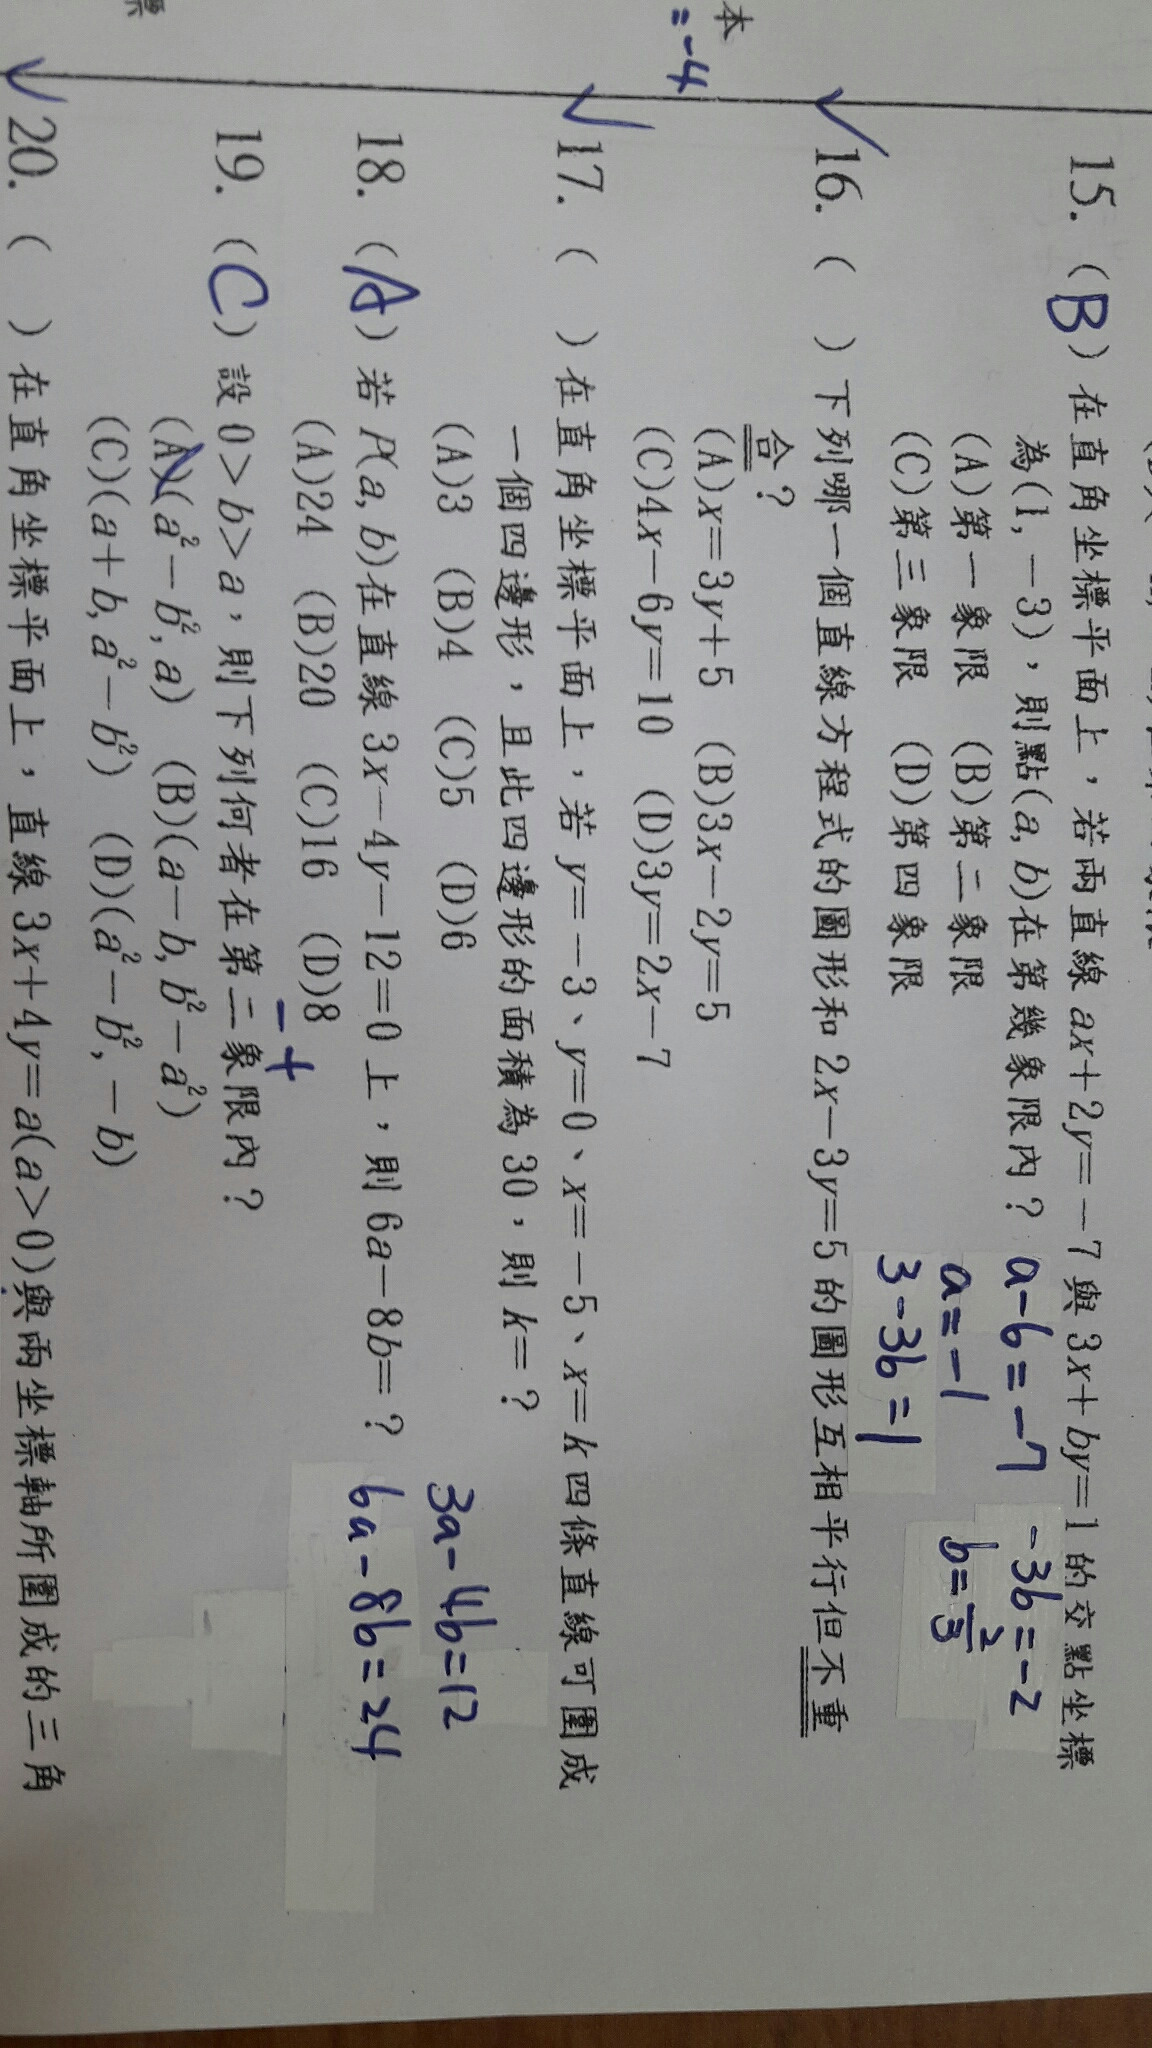 本
=-4
標
15. (B) 在直角坐標平面上，若兩直線 ax+2y=-7 與 3x+by=1 的交點坐標
為(1, -3)，則點(a, b)在第幾象限內？
(A)第一象限 (B)第二象限
(C)第三象限 (D)第四象限
a-6=-7
a=-1
3-3b=1
-3b=-2
b=2/3
16. ( ) 下列哪一個直線方程式的圖形和 2x-3y=5 的圖形互相平行但不重
合？
(A)x=3y+5 (B)3x-2y=5
(C)4x-6y=10 (D)3y=2x-7
17. ( ) 在直角坐標平面上，若 y=-3、y=0、x=-5、x=k 四條直線可圍成
一個四邊形，且此四邊形的面積為 30，則 k=？
(A)3 (B)4 (C)5 (D)6
3a-4b=12
18. (A) 若 P(a, b)在直線 3x-4y-12=0 上，則 6a-8b=？
6a-8b=24
(A)24 (B)20 (C)16 (D)8
- +
19. (C) 設 0>b>a，則下列何者在第二象限內？
(A)(a²-b², a) (B)(a-b, b²-a²)
(C)(a+b, a²-b²) (D)(a²-b², -b)
20. ( ) 在直角坐標平面上，直線 3x+4y=a(a>0)與兩坐標軸所圍成的三角